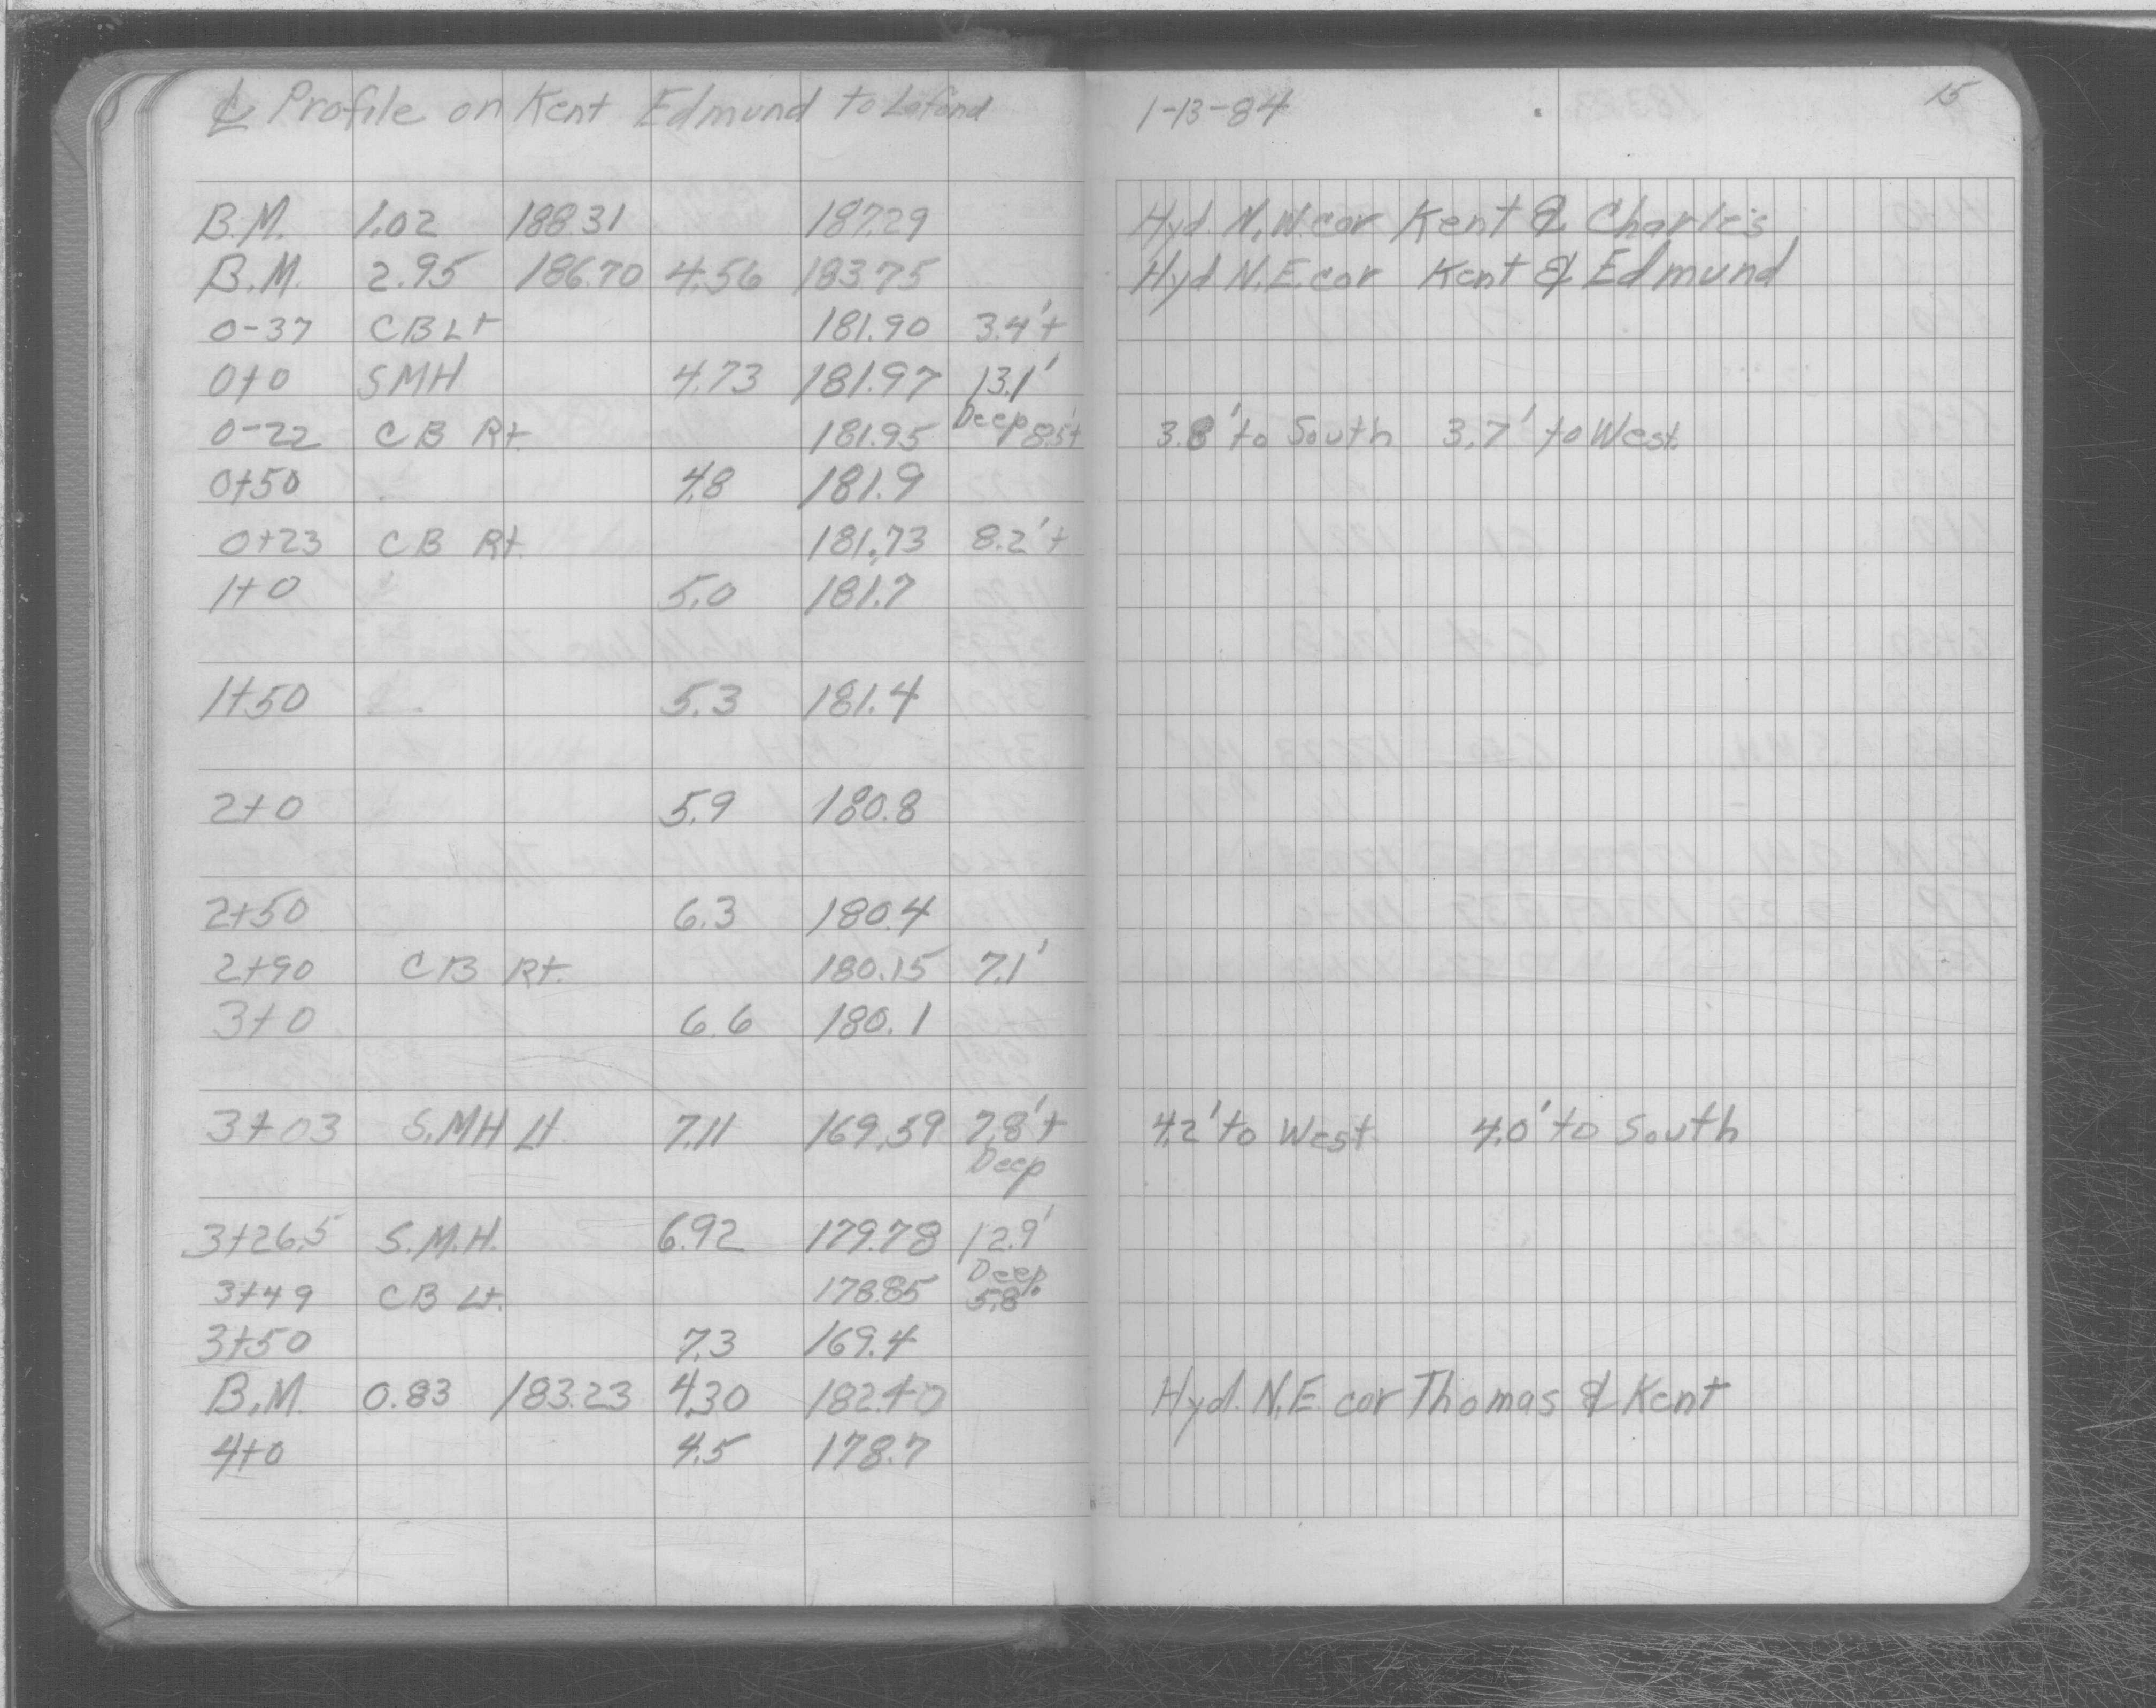 ℄ Profile on Kent Edmund to Lafond
1-13-84
15
B.M. 1.02 188.31 187.29 Hyd. N.W. cor Kent & Charles
B.M. 2.95 186.70 4.56 183.75 Hyd N.E. cor Kent & Edmund
0-37 CB Lt 181.90 3.4'+
0+0 SMH 4.73 181.97 13.1' Deep
0-22 CB Rt. 181.95 8.5'+ 3.8' to South 3.7' to West
0+50 4.8 181.9
0+23 CB Rt. 181.73 8.2'+
1+0 5.0 181.7
1+50 5.3 181.4
2+0 5.9 180.8
2+50 6.3 180.4
2+90 CB Rt. 180.15 7.1'
3+0 6.6 180.1
3+03 S.MH Lt. 7.11 169.59 7.8'+ 4.2' to West 4.0' to South
Deep
3+26.5 S.M.H. 6.92 179.78 12.9'
Deep
3+49 CB Lt. 178.85 5.8'
3+50 7.3 169.4
B.M. 0.83 183.23 4.30 182.40 Hyd. N.E. cor Thomas & Kent
4+0 4.5 178.7